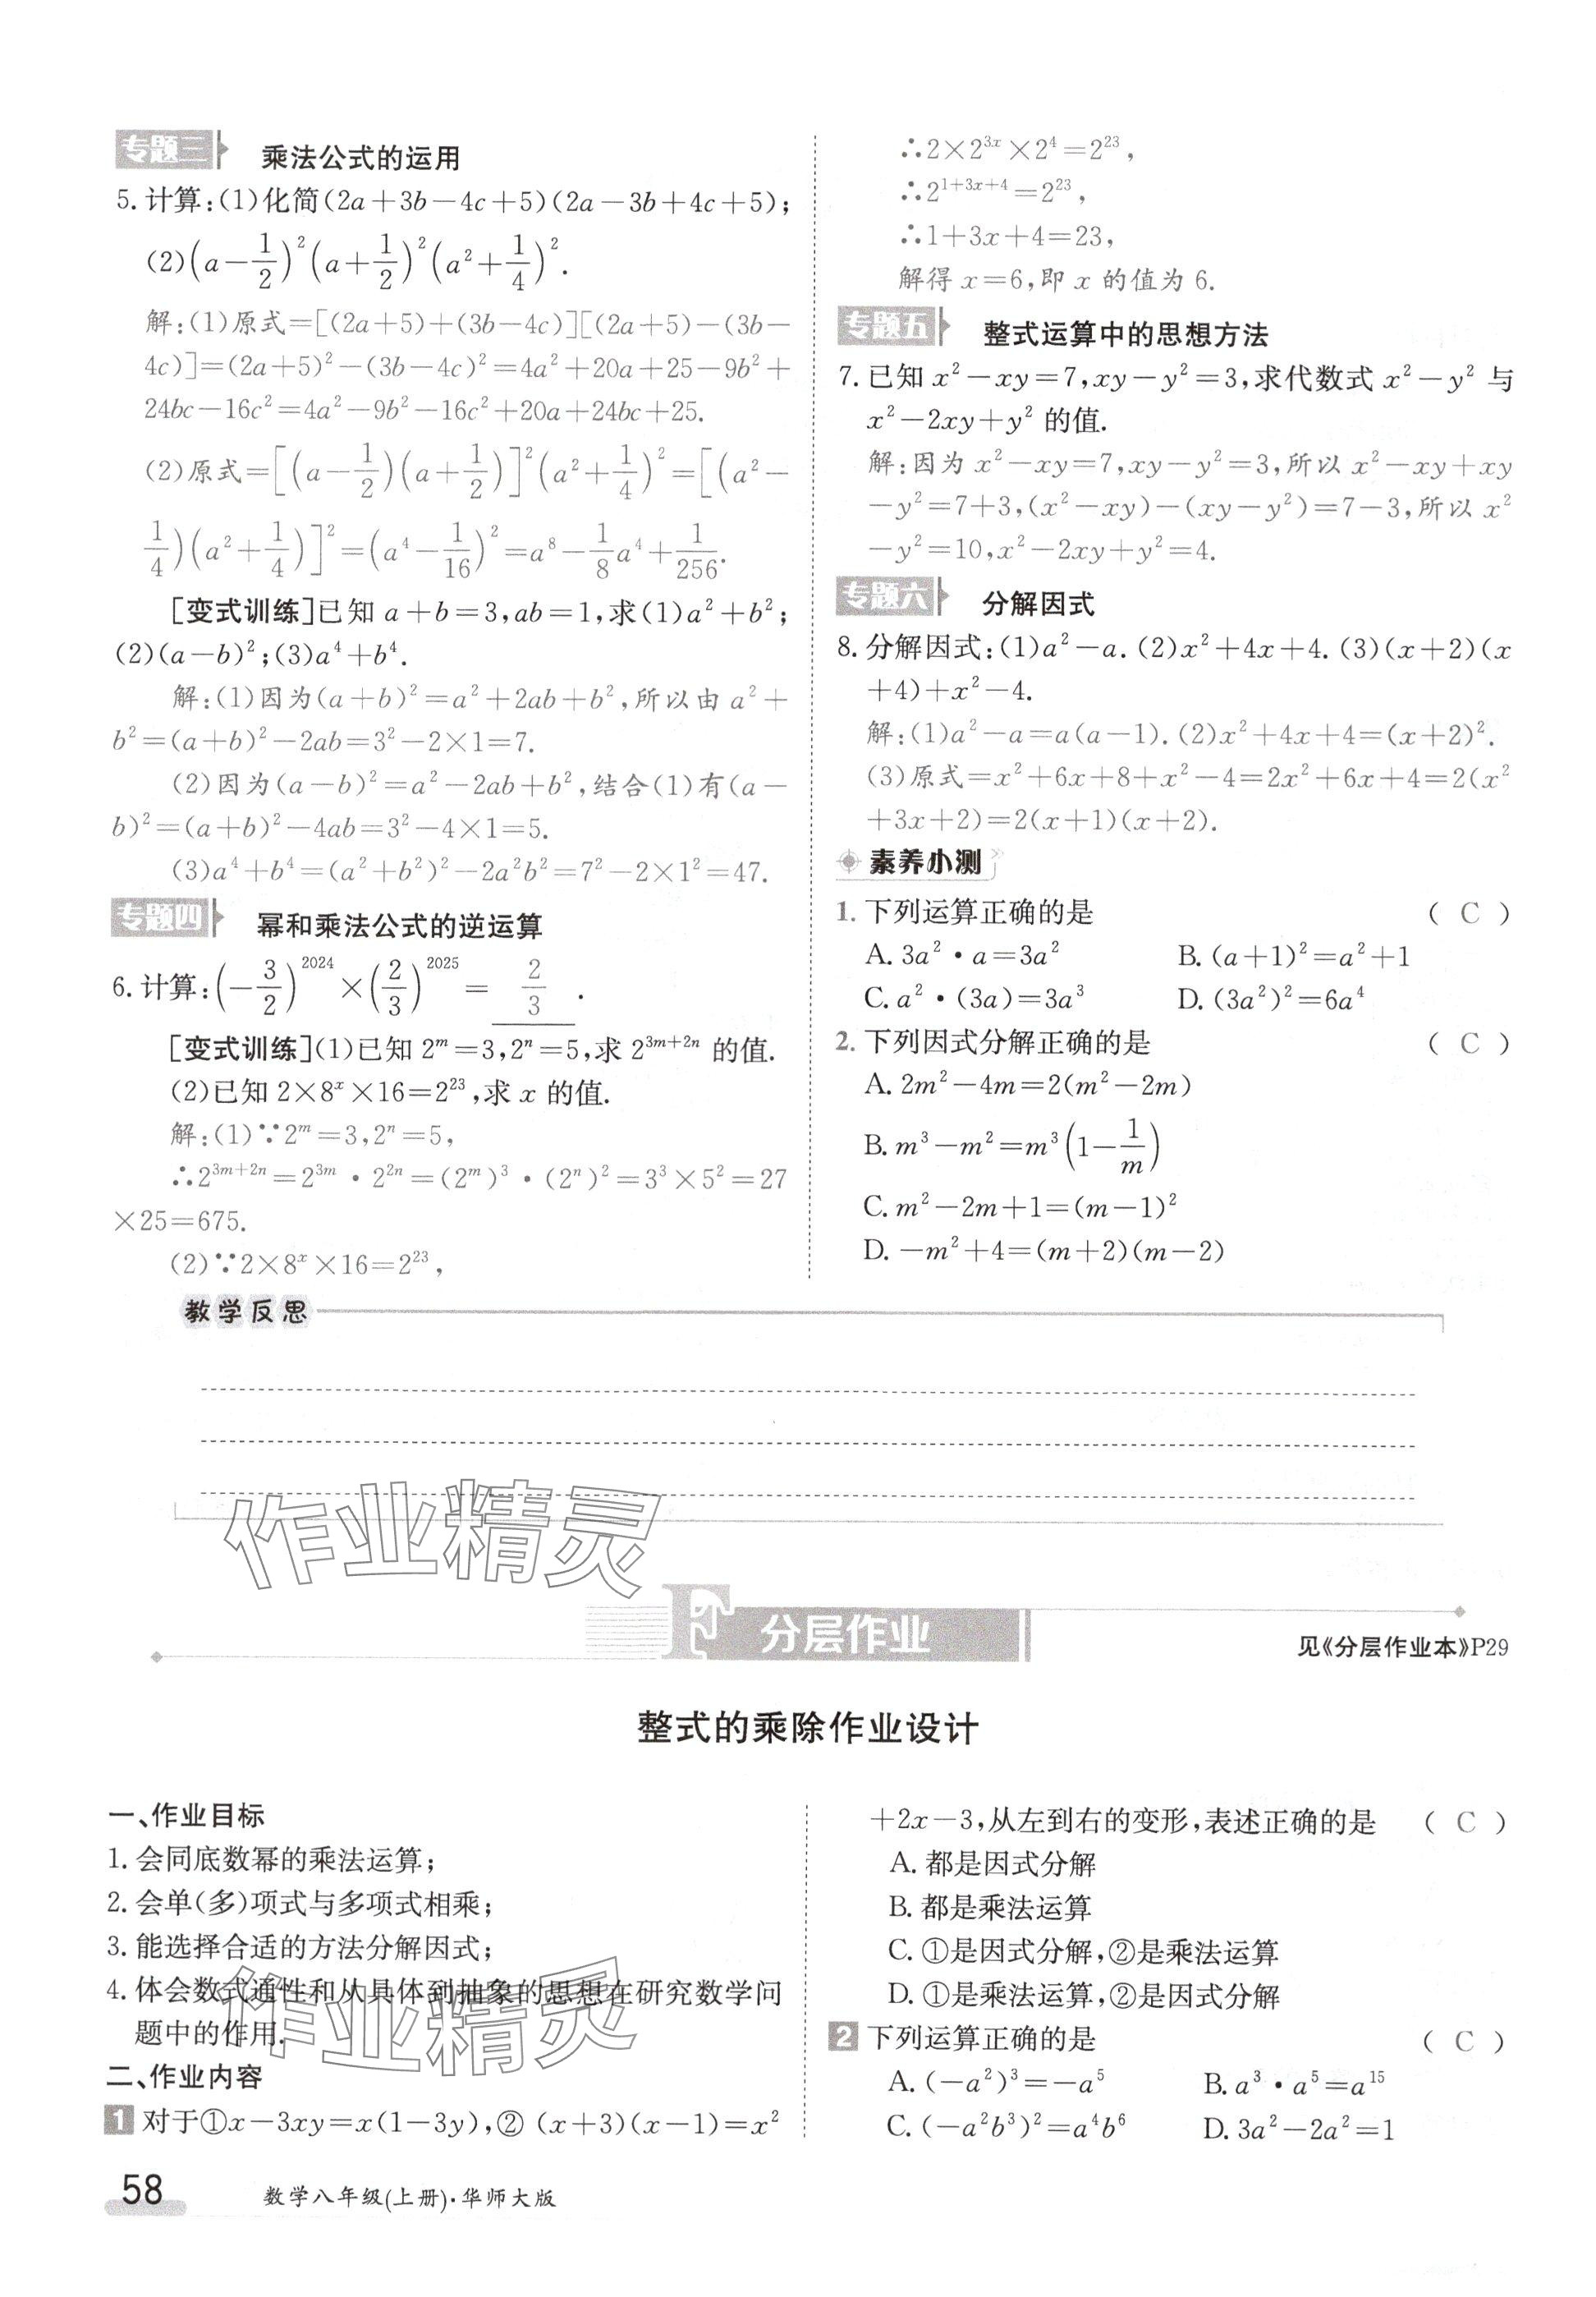 专题三 乘法公式的运用
5. 计算:(1)化简(2a+3b-4c+5)(2a-3b+4c+5);
(2)(a-1/2)²(a+1/2)²(a²+1/4)².
解:(1)原式=[(2a+5)+(3b-4c)][(2a+5)-(3b-
4c)]=(2a+5)²-(3b-4c)²=4a²+20a+25-9b²+
24bc-16c²=4a²-9b²-16c²+20a+24bc+25.
(2)原式=[(a-1/2)(a+1/2)]²(a²+1/4)²=[(a²-
1/4)(a²+1/4)]²=(a⁴-1/16)²=a⁸-1/8a⁴+1/256.
[变式训练]已知 a+b=3,ab=1,求(1)a²+b²;
(2)(a-b)²;(3)a⁴+b⁴.
解:(1)因为(a+b)²=a²+2ab+b²,所以由 a²+
b²=(a+b)²-2ab=3²-2×1=7.
(2)因为(a-b)²=a²-2ab+b²,结合(1)有(a-
b)²=(a+b)²-4ab=3²-4×1=5.
(3)a⁴+b⁴=(a²+b²)²-2a²b²=7²-2×1²=47.
专题四 幂和乘法公式的逆运算
6. 计算:(-3/2)²⁰²⁴×(2/3)²⁰²⁵= 2/3 .
[变式训练](1)已知 2ᵐ=3,2ⁿ=5,求 2³ᵐ⁺²ⁿ 的值.
(2)已知 2×8ˣ×16=2²³,求 x 的值.
解:(1)∵2ᵐ=3,2ⁿ=5,
∴2³ᵐ⁺²ⁿ=2³ᵐ·2²ⁿ=(2ᵐ)³·(2ⁿ)²=3³×5²=27
×25=675.
(2)∵2×8ˣ×16=2²³,
∴2×2³ˣ×2⁴=2²³,
∴2¹⁺³ˣ⁺⁴=2²³,
∴1+3x+4=23,
解得 x=6,即 x 的值为 6.
专题五 整式运算中的思想方法
7. 已知 x²-xy=7,xy-y²=3,求代数式 x²-y² 与
x²-2xy+y² 的值.
解:因为 x²-xy=7,xy-y²=3,所以 x²-xy+xy
-y²=7+3,(x²-xy)-(xy-y²)=7-3,所以 x²
-y²=10,x²-2xy+y²=4.
专题六 分解因式
8. 分解因式:(1)a²-a.(2)x²+4x+4.(3)(x+2)(x
+4)+x²-4.
解:(1)a²-a=a(a-1).(2)x²+4x+4=(x+2)².
(3)原式=x²+6x+8+x²-4=2x²+6x+4=2(x²
+3x+2)=2(x+1)(x+2).
素养小测
1. 下列运算正确的是 ( C )
A. 3a²·a=3a² B. (a+1)²=a²+1
C. a²·(3a)=3a³ D. (3a²)²=6a⁴
2. 下列因式分解正确的是 ( C )
A. 2m²-4m=2(m²-2m)
B. m³-m²=m³(1-1/m)
C. m²-2m+1=(m-1)²
D. -m²+4=(m+2)(m-2)
教学反思
作业精灵
F 分层作业
见《分层作业本》P29
整式的乘除作业设计
一、作业目标
1. 会同底数幂的乘法运算;
2. 会单(多)项式与多项式相乘;
3. 能选择合适的方法分解因式;
4. 体会数式通性和从具体到抽象的思想在研究数学问
题中的作用.
作业精灵
二、作业内容
1 对于①x-3xy=x(1-3y),② (x+3)(x-1)=x²
+2x-3,从左到右的变形,表述正确的是 ( C )
A. 都是因式分解
B. 都是乘法运算
C. ①是因式分解,②是乘法运算
D. ①是乘法运算,②是因式分解
2 下列运算正确的是 ( C )
A. (-a²)³=-a⁵ B. a³·a⁵=a¹⁵
C. (-a²b³)²=a⁴b⁶ D. 3a²-2a²=1
58 数学八年级(上册)·华师大版